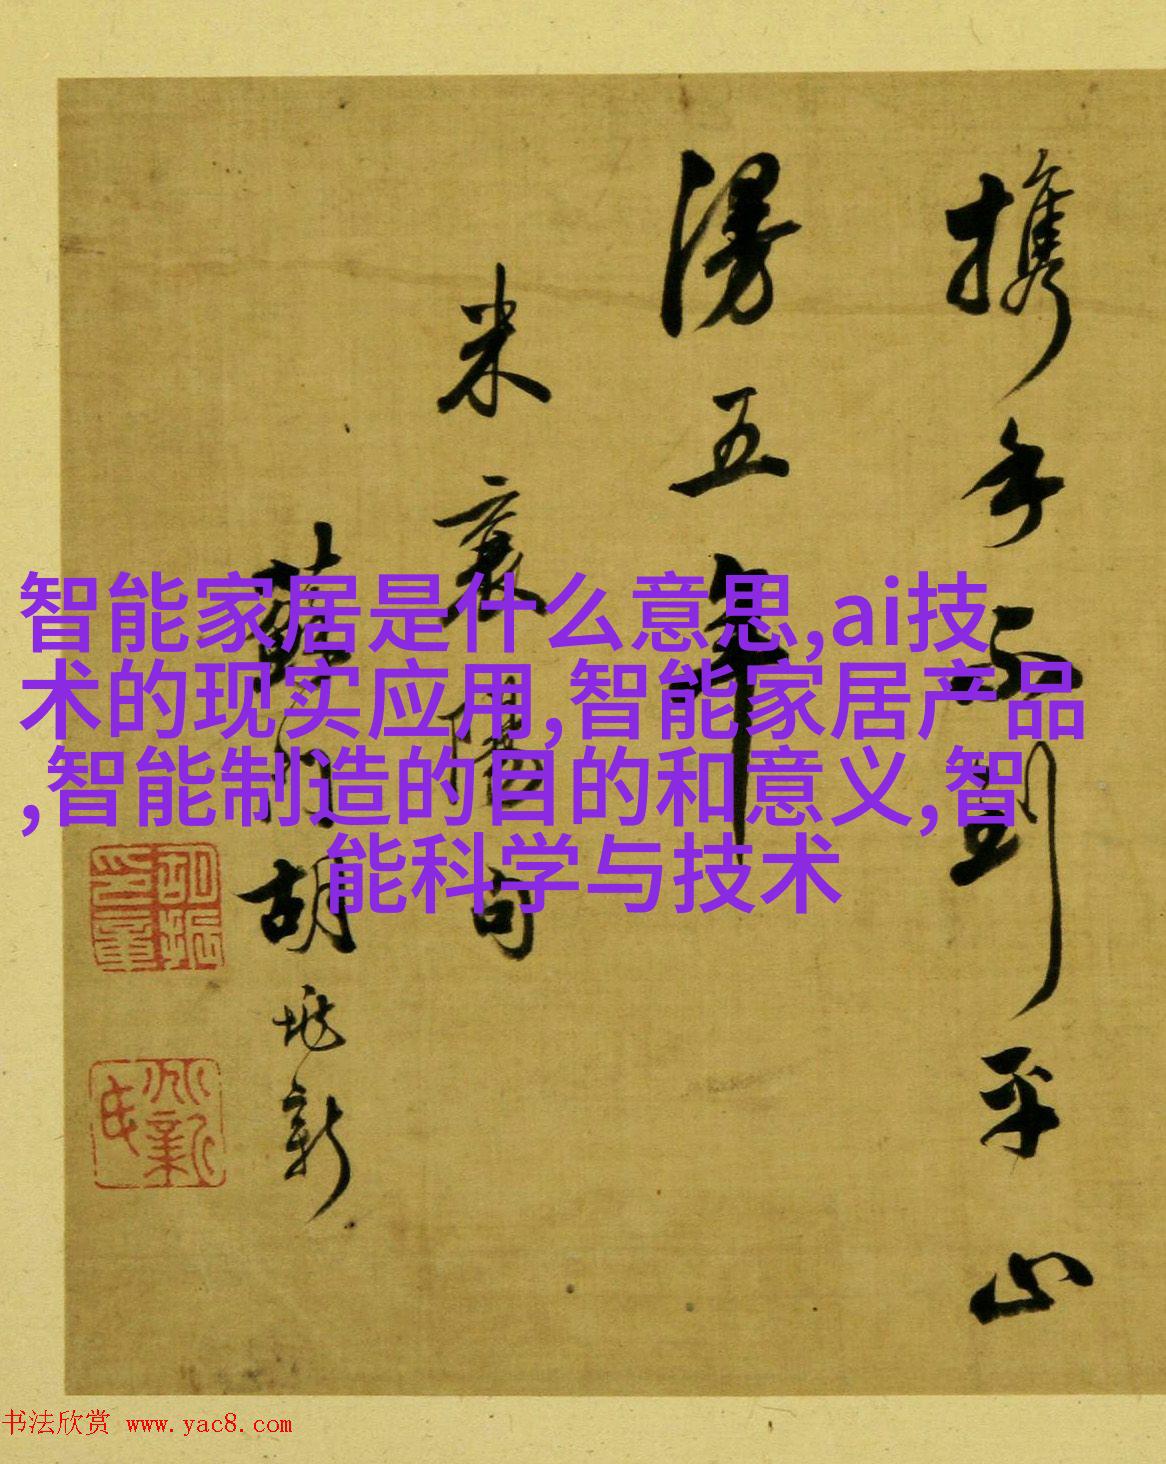 攜手不到平山
五年
米襄陽句
胡新
智能家居是什么意思,ai技
术的现实应用,智能家居产品
,智能制造的目的和意义,智
能科学与技术
书法欣赏 www.yac8.com